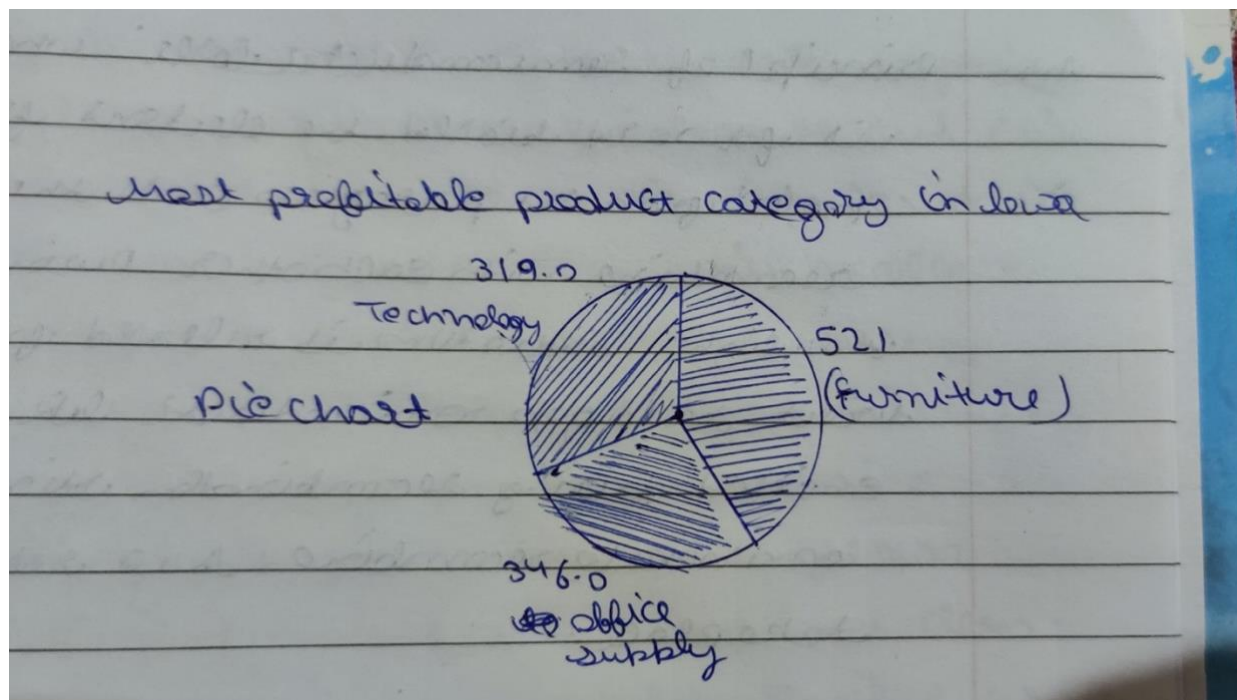 Most profitable product category in Iowa
319.0
Technology
521
(furniture)
Pie chart
346.0
office
supply